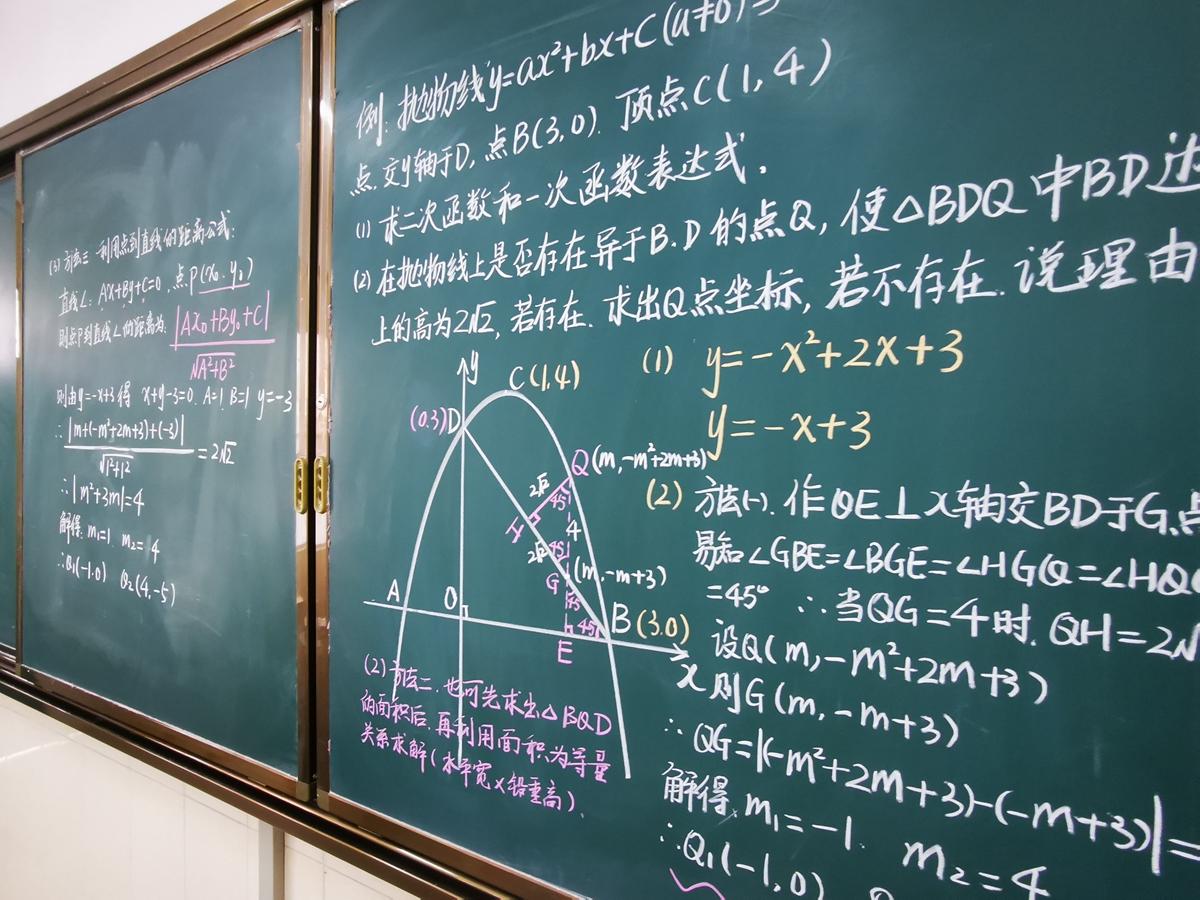 (3) 方法三 利用点到直线的距离公式:
直线L: Ax+By+C=0, 点P(x₀. y₀)
则点P到直线L的距离为: |Ax₀+By₀+C|
√A²+B²
则由y=-x+3得 x+y-3=0. A=1. B=1 y=-3
∴ |m+(-m²+2m+3)+(-3)|
√1²+1²
=2√2
∴|m²+3m|=4
解得: m₁=1. m₂=4
∴Q₁(-1.0) Q₂(4,-5)
例: 抛物线y=ax²+bx+C(a≠0)
点. 交y轴于D, 点B(3,0). 顶点C(1,4)
(1) 求二次函数和一次函数表达式.
(2) 在抛物线上是否存在异于B.D的点Q, 使△BDQ中BD边
上的高为2√2, 若存在. 求出Q点坐标, 若不存在. 说理由
y
C (1,4)
(0.3) D
Q (m,-m²+2m+3)
2√2
45
H
4
2√2
45
(m,-m+3)
G
45
A
O
45
B (3.0)
E
x
(2) 方法二. 也可先求出△BQD
的面积后. 再利用面积为等量
关系求解(水平宽×铅垂高).
(1) y=-x²+2x+3
y=-x+3
(2) 方法(一). 作QE⊥x轴交BD于G.点
易知∠GBE=∠BGE=∠HGQ=∠HQG
=45° ∴当QG=4时. QH=2√
设Q(m,-m²+2m+3)
则G(m,-m+3)
∴QG=|(-m²+2m+3)-(-m+3)|=
解得. m₁=-1. m₂=4
∴Q₁(-1,0)